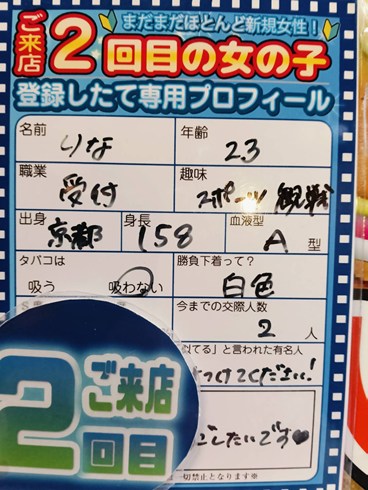 まだまだほとんど新規女性！
ご来店
2回目の女の子
登録したて専用プロフィール
名前 りな 年齢 23
職業 受付 趣味 スポーツ観戦
出身 京都 身長 158 血液型 A 型
タバコは 吸う 吸わない 勝負下着って？ 白色
今までの交際人数 2 人
似てる」と言われた有名人
つけてください!
ご来店
2回目
ごしたいです♥
一切禁止となります※